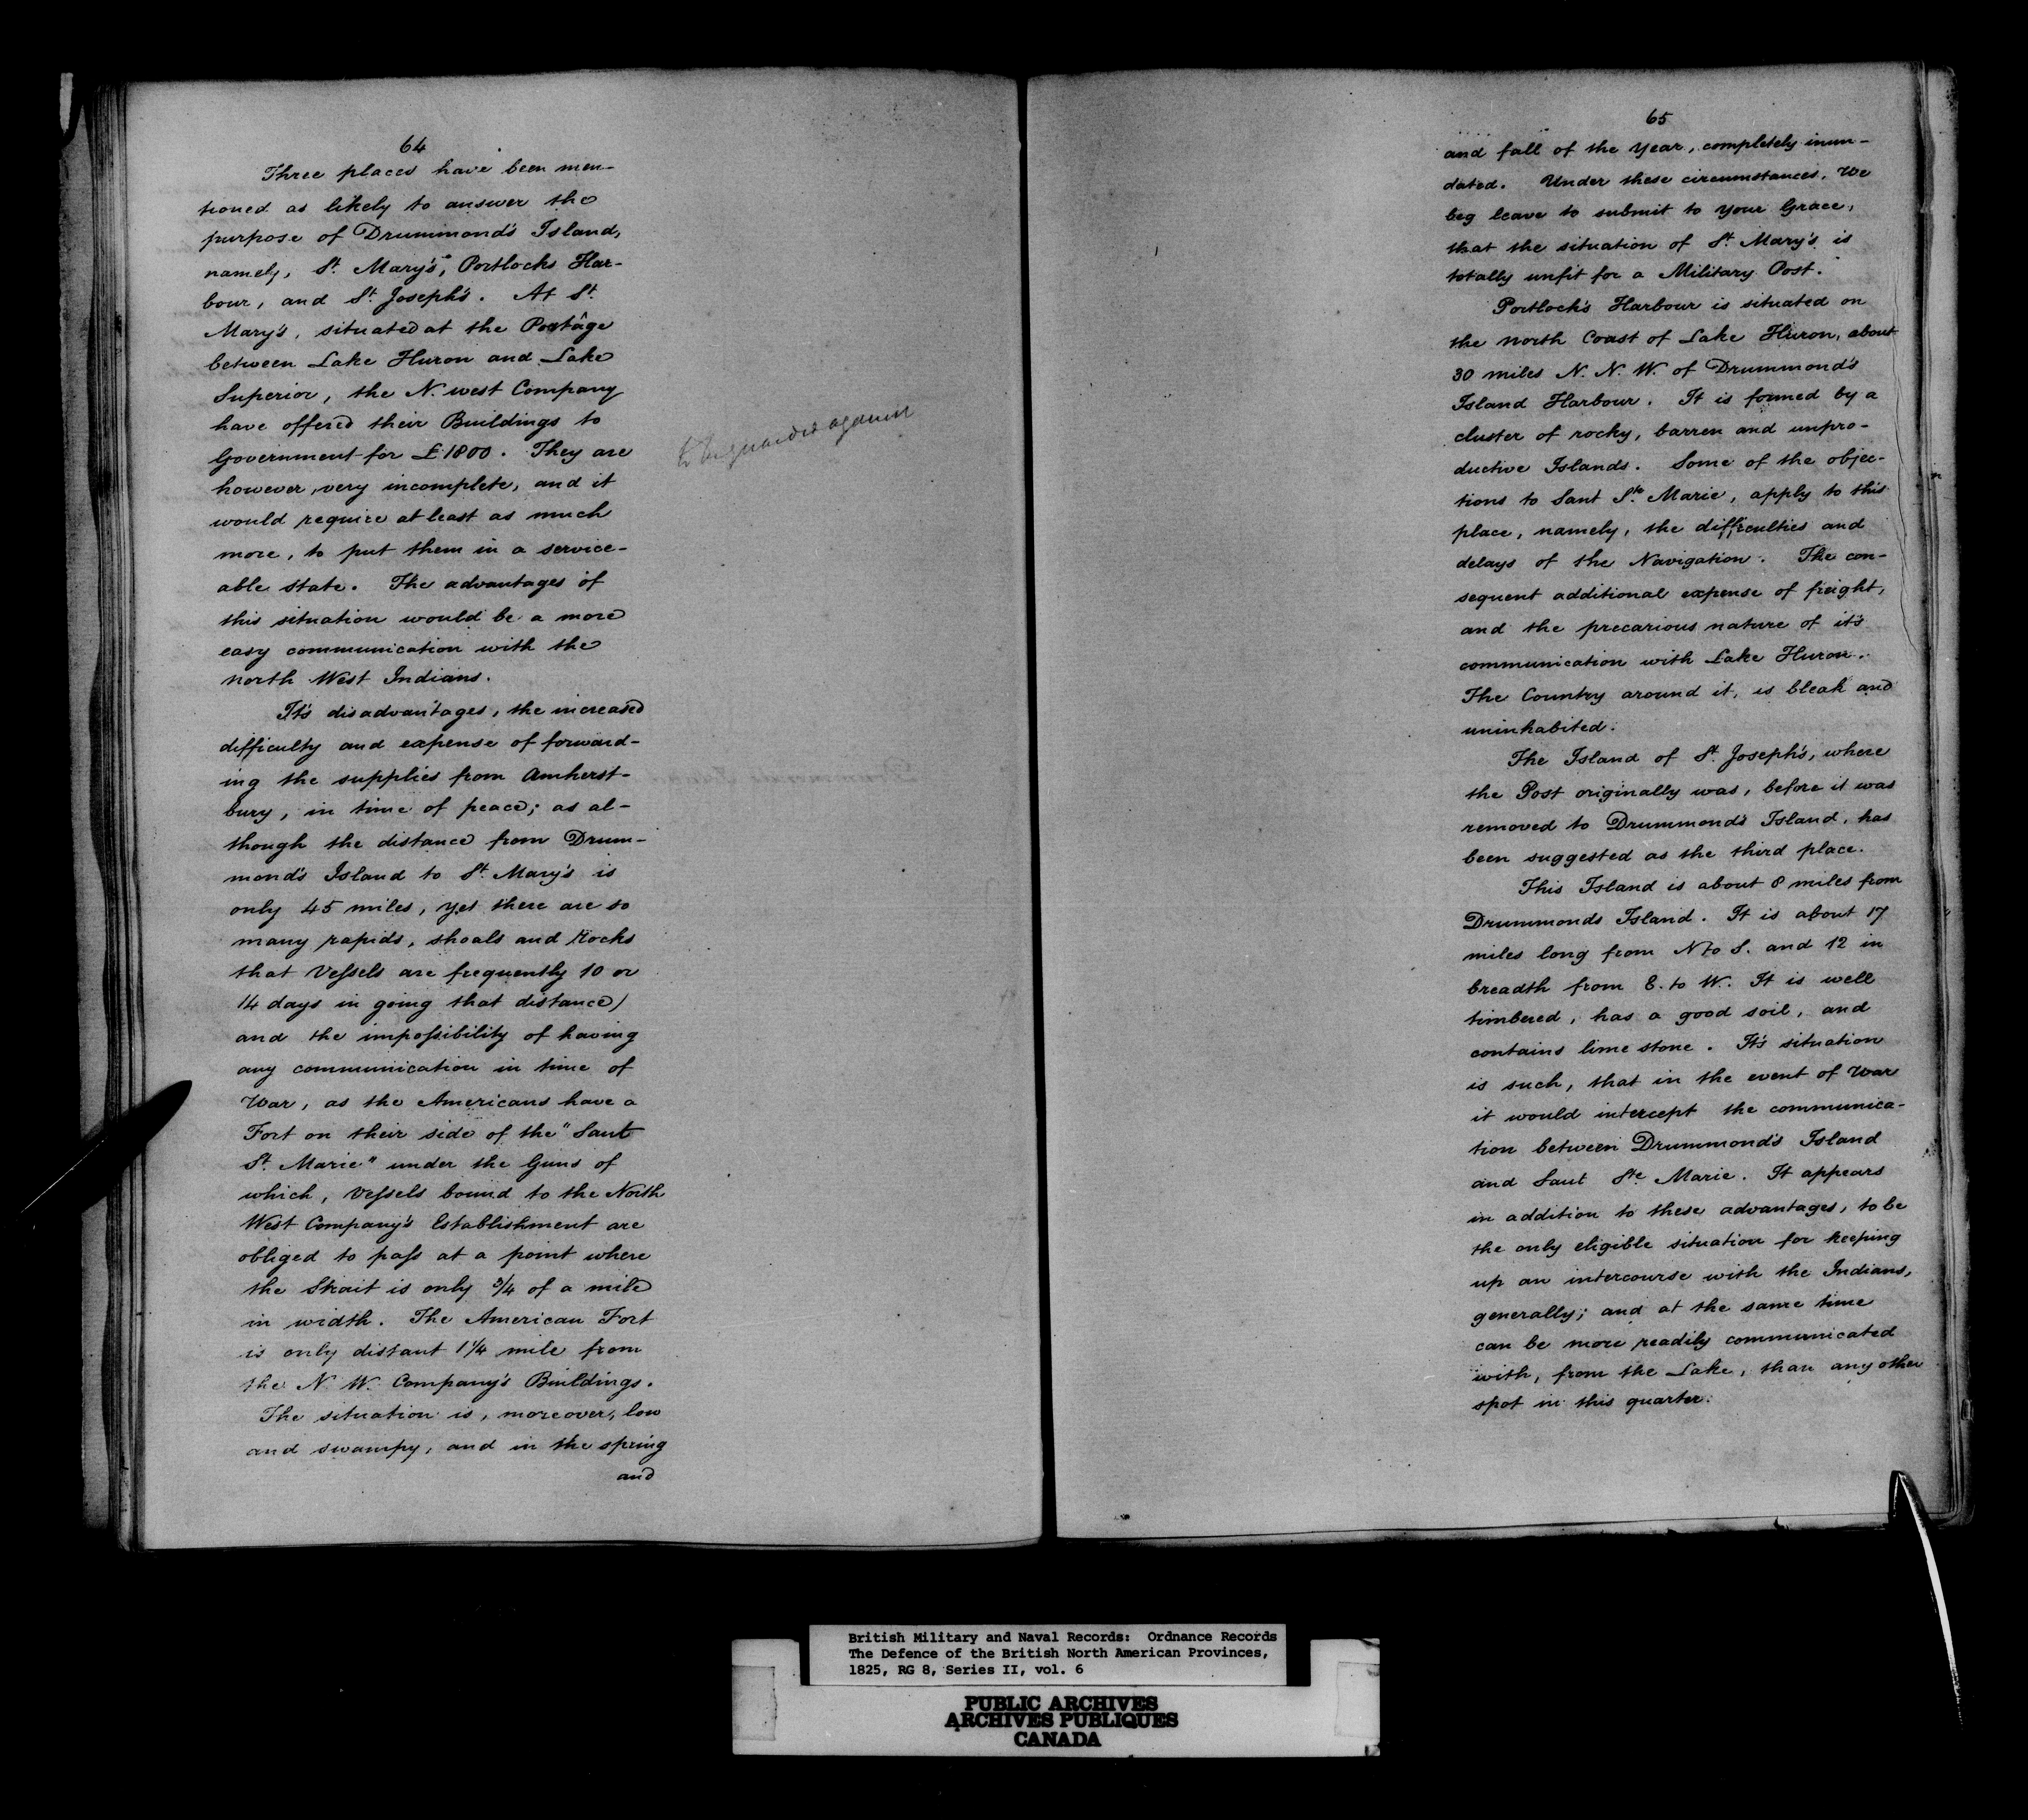 64
Three places have been men-
tioned as likely to answer the
purpose of Drummond's Island,
namely, St. Mary's, Portlocks Har-
bour, and St. Joseph's. At St.
Mary's, situated at the Portage
between Lake Huron and Lake
Superior, the N. west Company
have offered their Buildings to
Government for £1800. They are
however, very incomplete, and it
would require at least as much
more, to put them in a service-
able state. The advantages of
this situation would be a more
easy communication with the
north West Indians.
It's disadvantages, the increased
difficulty and expense of forward-
ing the supplies from Amherst-
bury, in time of peace; as al-
though the distance from Drum-
mond's Island to St. Mary's is
only 45 miles, yet there are so
many rapids, shoals and Rocks
that Vessels are frequently 10 or
14 days in going that distance)
and the impossibility of having
any communication in time of
War, as the Americans have a
Fort on their side of the "Saut
St. Marie" under the Guns of
which, Vessels bound to the North
West Company's Establishment are
obliged to pass at a point where
the Strait is only 3/4 of a mile
in width. The American Fort
is only distant 1 1/4 mile from
the N. W. Company's Buildings.
The situation is, moreover, low
and swampy, and in the spring
and
against
65
and fall of the Year, completely inun-
dated. Under these circumstances, We
beg leave to submit to Your Grace,
that the situation of St. Mary's is
totally unfit for a Military Post.
Portlock's Harbour is situated on
the north Coast of Lake Huron, about
30 miles N. N. W. of Drummond's
Island Harbour. It is formed by a
cluster of rocky, barren and unpro-
ductive Islands. Some of the objec-
tions to Saut Ste. Marie, apply to this
place, namely, the difficulties and
delays of the Navigation. The con-
sequent additional expense of freight,
and the precarious nature of it's
communication with Lake Huron.
The Country around it, is bleak and
uninhabited.
The Island of St. Joseph's, where
the Post originally was, before it was
removed to Drummond's Island, has
been suggested as the third place.
This Island is about 8 miles from
Drummonds Island. It is about 17
miles long from N to S. and 12 in
breadth from E. to W. It is well
timbered, has a good soil, and
contains lime stone. It's situation
is such, that in the event of War
it would intercept the communica-
tion between Drummond's Island
and Saut Ste. Marie. It appears
in addition to these advantages, to be
the only eligible situation for keeping
up an intercourse with the Indians,
generally; and at the same time
can be more readily communicated
with, from the Lake, than any other
spot in this quarter.
British Military and Naval Records: Ordnance Records
The Defence of the British North American Provinces,
1825, RG 8, Series II, vol. 6
PUBLIC ARCHIVES
ARCHIVES PUBLIQUES
CANADA